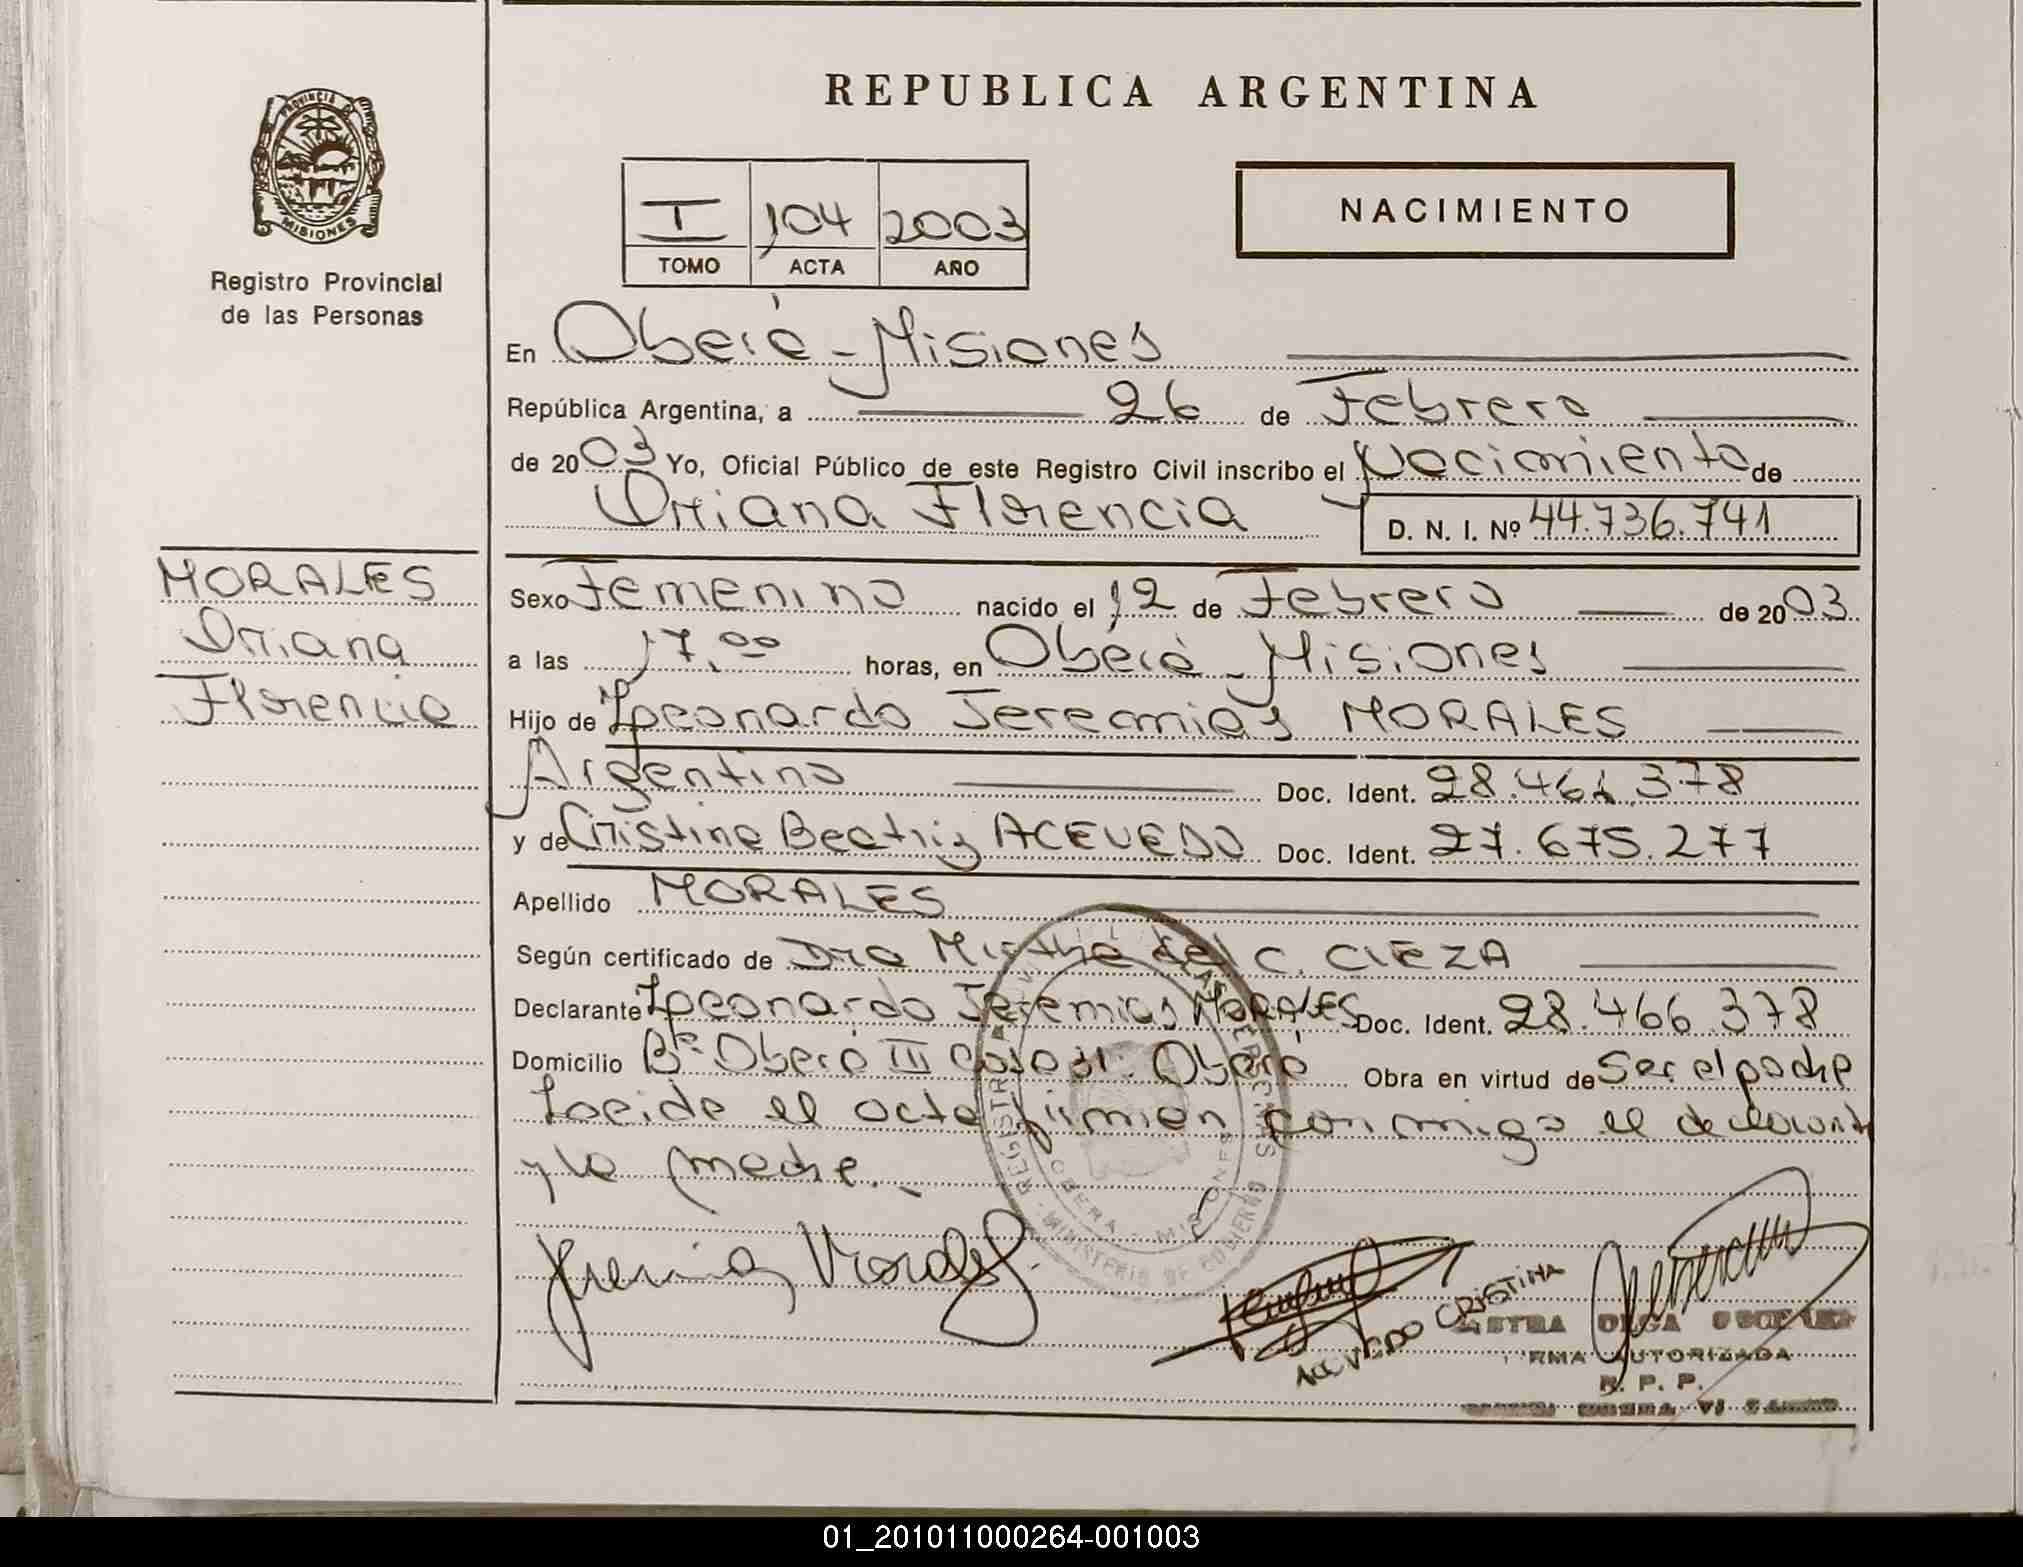 REPUBLICA ARGENTINA
PROVINCIA DE
MISIONES
Registro Provincial
de las Personas
I 104 2003
TOMO ACTA AÑO
NACIMIENTO
En Oberá - Misiones
República Argentina, a 26 de Febrero
de 2003 Yo, Oficial Público de este Registro Civil inscribo el Nacimiento de
Oriana Florencia
D. N. I. Nº 44.736.741
MORALES
Oriana
Florencia
Sexo Femenino nacido el 12 de Febrero de 2003
a las 17.00 horas, en Oberá - Misiones
Hijo de Leonardo Jeremias MORALES
Argentino Doc. Ident. 28.466.378
y de Cristina Beatriz ACEVEDO Doc. Ident. 27.675.277
Apellido MORALES
Según certificado de Dra Mirtha del C. CIEZA
Declarante Leonardo Jeremias MORALES Doc. Ident. 28.466.378
Domicilio Bº Oberá III Casa 31. Oberá Obra en virtud de Ser el padre
Leida el acta firman conmigo el declarante
y la madre.-
OBERA MISIONES
MINISTERIO DE GOBIERNO
Jeremias Morales
ACEVEDO CRISTINA
OLGA
FIRMA AUTORIZADA
R. P. P.
01_201011000264-001003